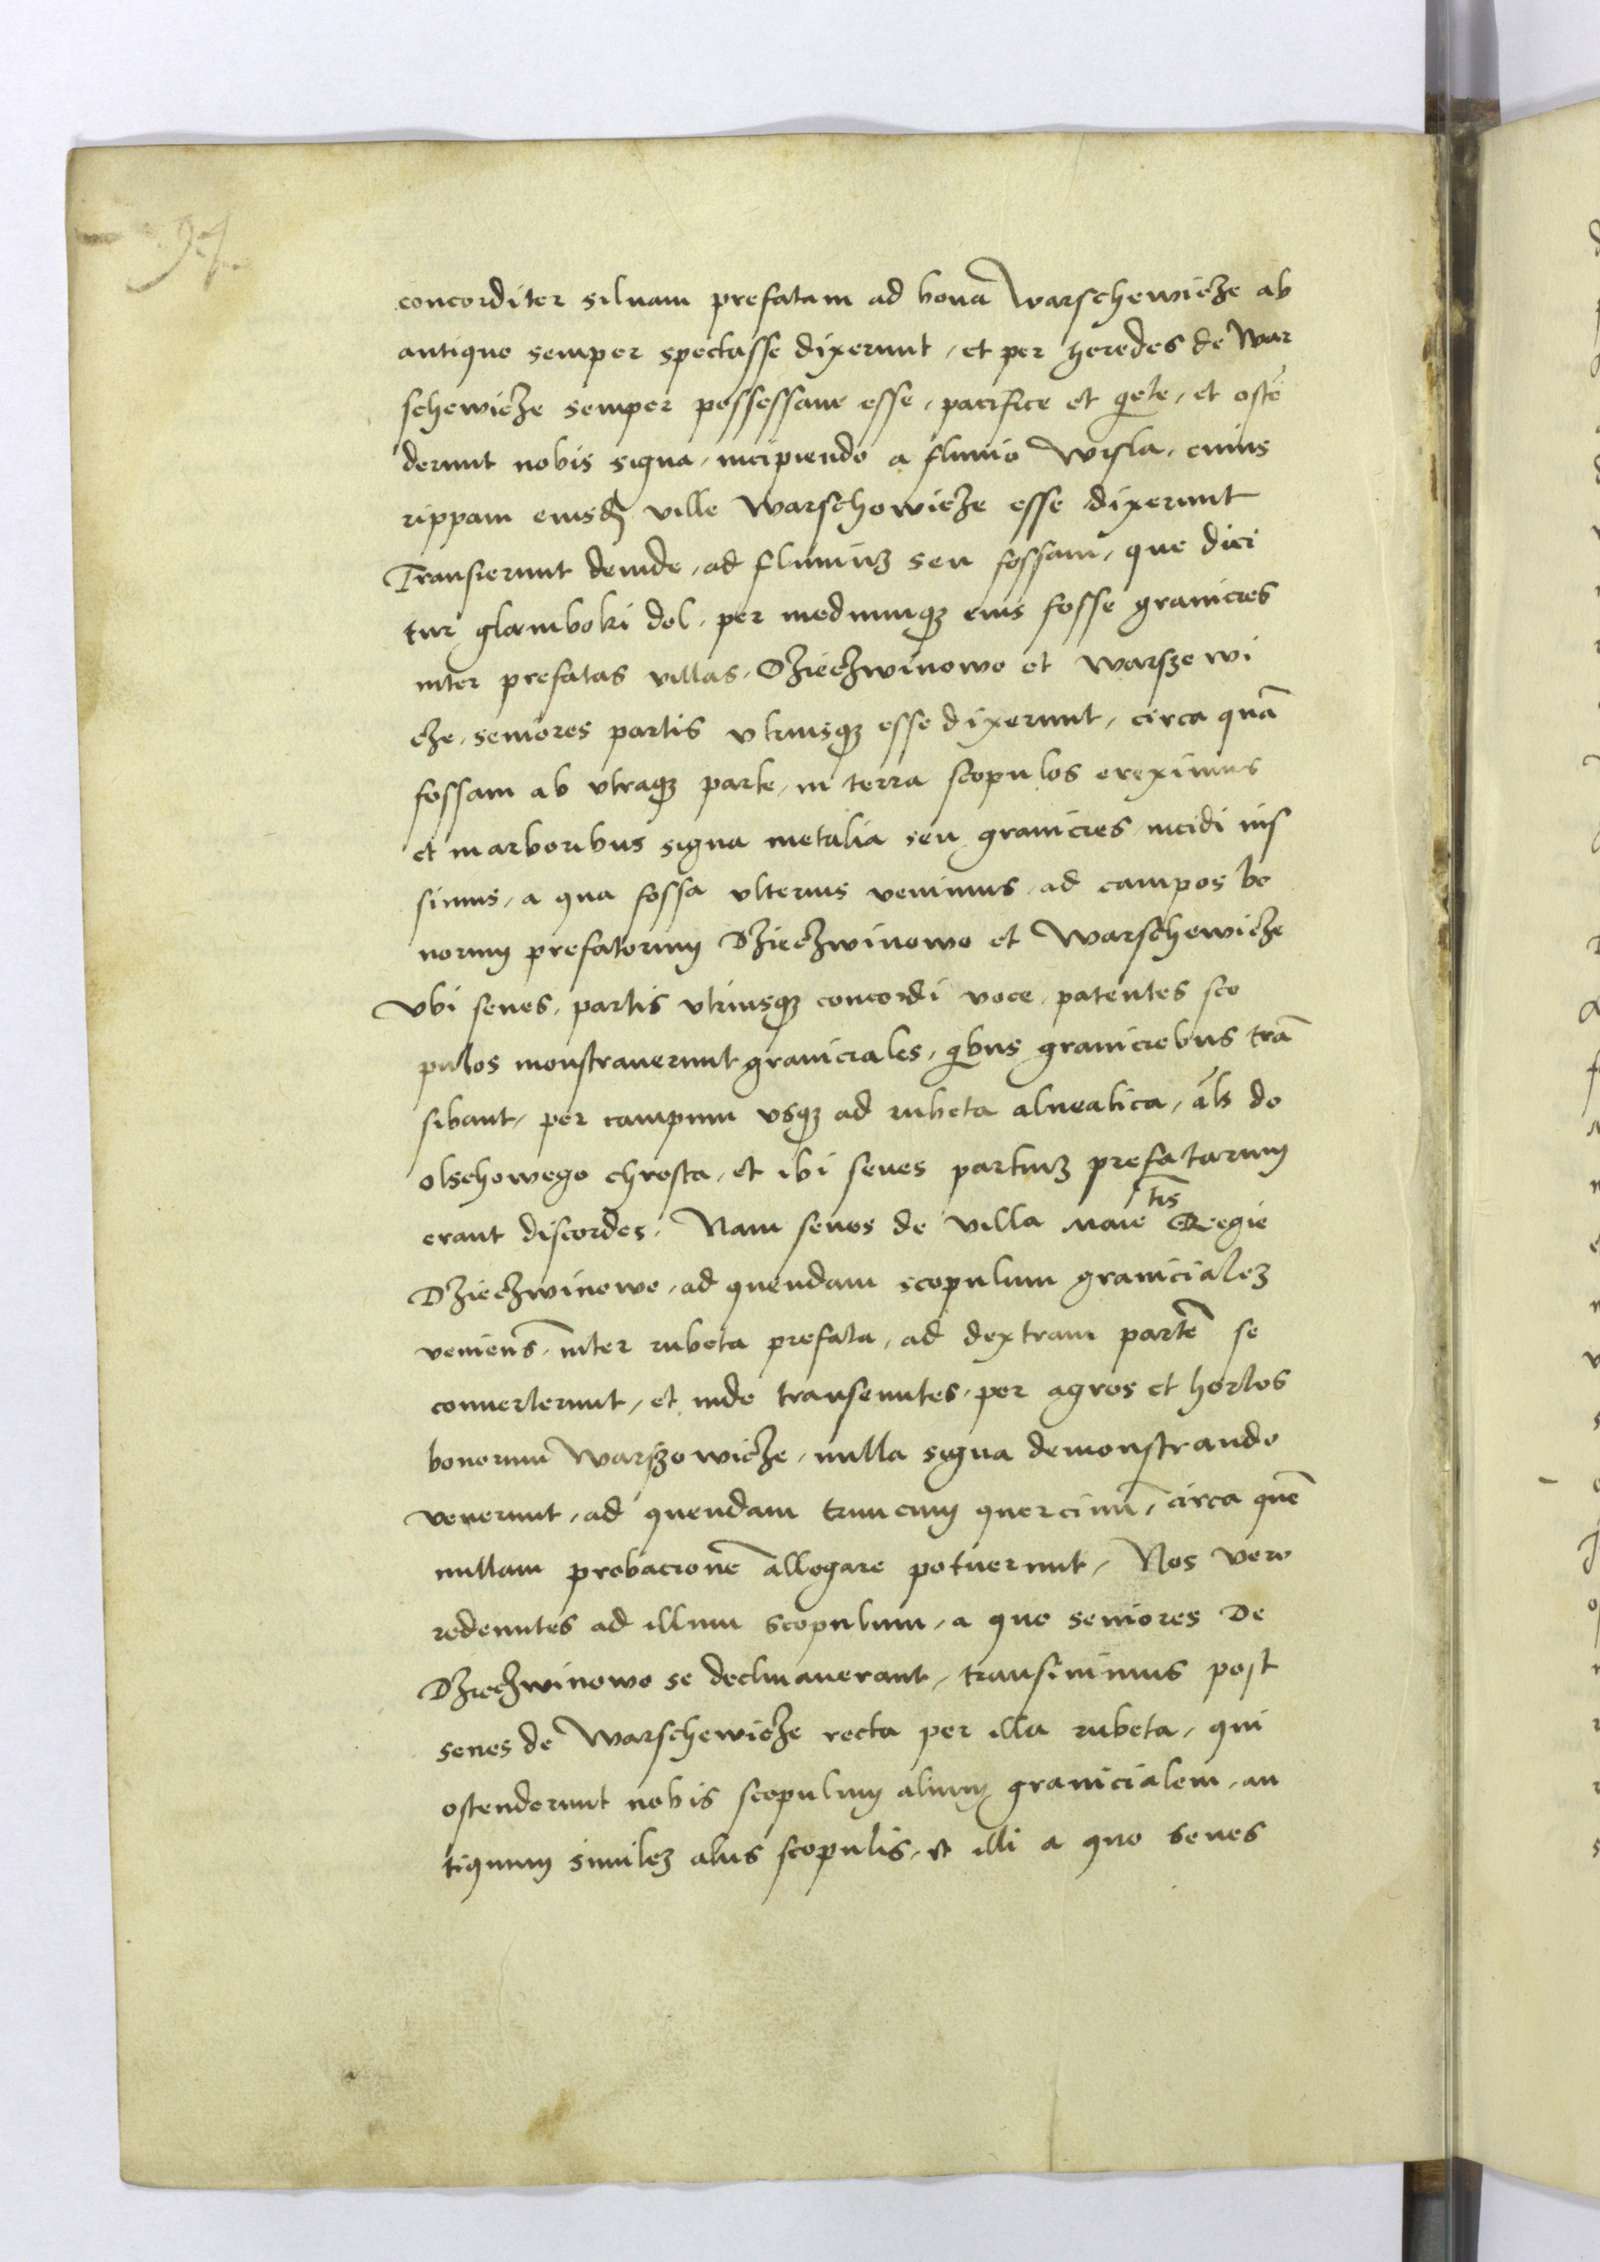 concorditer siluam prefatam ad bona Warschewicze ab
antiquo semper spectasse dixerunt, et per heredes de War
schewicze semper possessam esse, pacifice et qiete, et ostē
derunt nobis signa, incipiendo a fluuio Wisla, cuius
rippam eiusdē ville Warschowicze esse dixerunt
Transierunt deinde, ad fluuiuʒ seu fossam, que dici
tur glamboki dol, per mediumqʒ eius fosse granicies
inter prefatas villas, Dziećzwinowo et Warszewi
cze, seniores partis vtriusqʒ esse dixerunt, circa quā
fossam ab vtraqʒ parte, in terra scopulos ereximus
et in arboribus signa metalia seu granicies incidi ius
simus, a qua fossa vlterius venimus, ad campos bo
norum prefatorum Dziećzwinowo et Warschewicze
Vbi senes, partis vtriusqʒ concordi voce, patentes sco
pulos monstrauerunt graniciales, qibus graniciebus trā
sibant, per campum vsqʒ ad rubeta alneatica, āls do
olschowego chrosta, et ibi senes partiuʒ prefatarum
erant discordes. Nam senes de villa Maietis Regie
Dziećzwinowo, ad quendam scopulum granicialeʒ
veniens, inter rubeta prefata, ad dextram partē se
conuerterunt, et inde transeuntes, per agros et hortos
bonorum Warszowicze, nulla signa demonstrando
venerunt, ad quendam truncum quercinū, circa quē
nullam probacionē allegare potuerunt, Nos vero
redeuntes ad illum scopulum, a quo seniores De
Dziećzwinowo se declinauerant, transiuimus post
senes de Warschewicze recta per illa rubeta, qui
ostenderunt nobis scopulum alium granicialem, an
tiquum simileʒ aliis scopulis, et illi a quo senes